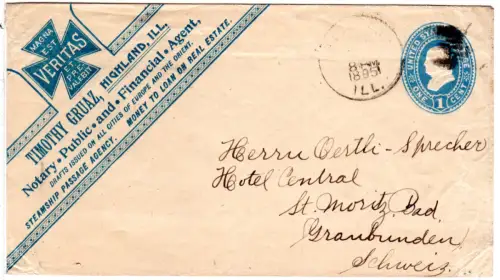 MAGNA
EST
VERITAS
ET
PRÆ
VALEBIT
TIMOTHY GRUAZ, HIGHLAND, ILL.
Notary • Public • and • Financial • Agent,
DRAFTS ISSUED ON ALL CITIES OF EUROPE AND THE ORIENT.
STEAMSHIP PASSAGE AGENCY. MONEY TO LOAN ON REAL ESTATE.
1895
ILL.
UNITED STATES
ONE 1 CENT
Herrn Oertli-Sprecher
Hotel Central
St. Moritz Bad
Graubünden
Schweiz.